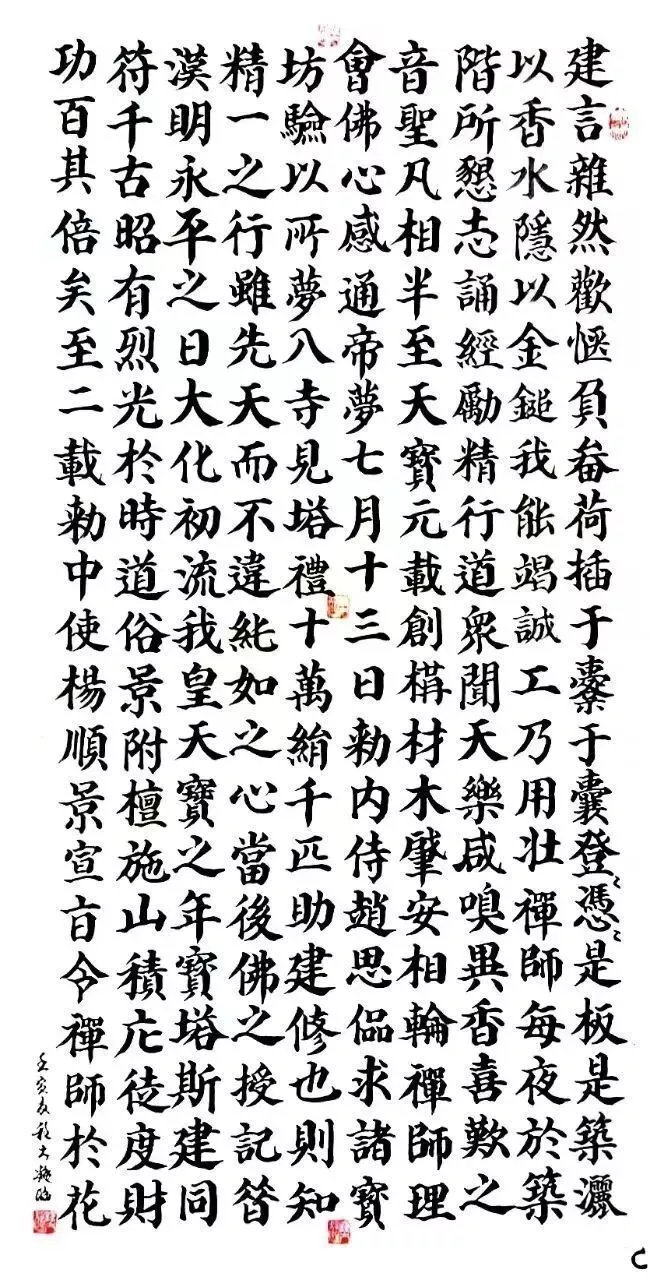 建言雜然歡愜負畚荷插于橐于囊登〻憑〻是板是築灑
以香水隱以金鎚我能竭誠工乃用壯禪師每夜於築
階所懇志誦經勵精行道眾聞天樂咸嗅異香喜歎之
音聖凡相半至天寶元載創構材木肇安相輪禪師理
會佛心感通帝夢七月十三日勅內侍趙思侃求諸寶
坊驗以所夢入寺見塔禮十萬絹千匹助建修也則知
精一之行雖先天而不違純如之心當後佛之授記昔
漢明永平之日大化初流我皇天寶之年寶塔斯建同
符千古昭有烈光於時道俗景附檀施山積庀徒度財
功百其倍矣至二載勅中使楊順景宣旨令禪師於花
壬寅夏